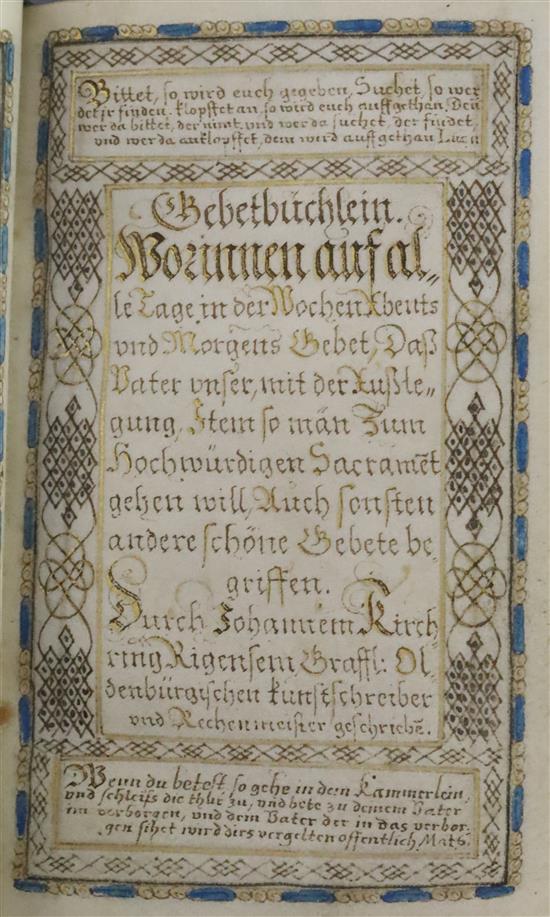 Bittet, so wird euch gegeben, Suchet, so wer
det ir finden, klopffet an, so wird euch auffgethan, Deñ
wer da bittet, der nimt, vnd wer da suchet, der findet,
vnd wer da anklopffet, dem wird auffgethan Luc. 11
Gebetbüchlein.
Worinnen auf al„
le Tage in der Wochen Abents
vnd Morgens Gebet, Daß
Vater vnser, mit der Außle„
gung, Item so män Zum
Hochwürdigen Sacramẽt
gehen will, Auch sonsten
andere schöne Gebete be
griffen.
Durch Johannem Kirch
ring Rigensem, Graffl: Ol„
denbürgischen kunstschreiber
vnd Rechenmeister geschriebẽ.
Wenn du betest, so gehe in dein Kammerlein,
vnd schleiß die thür zu, vnd bete zu deinem Vater
im verborgen, vnd dein Vater der in das verbor„
gen sihet wird dirs vergelten offentlich, Mat 6.